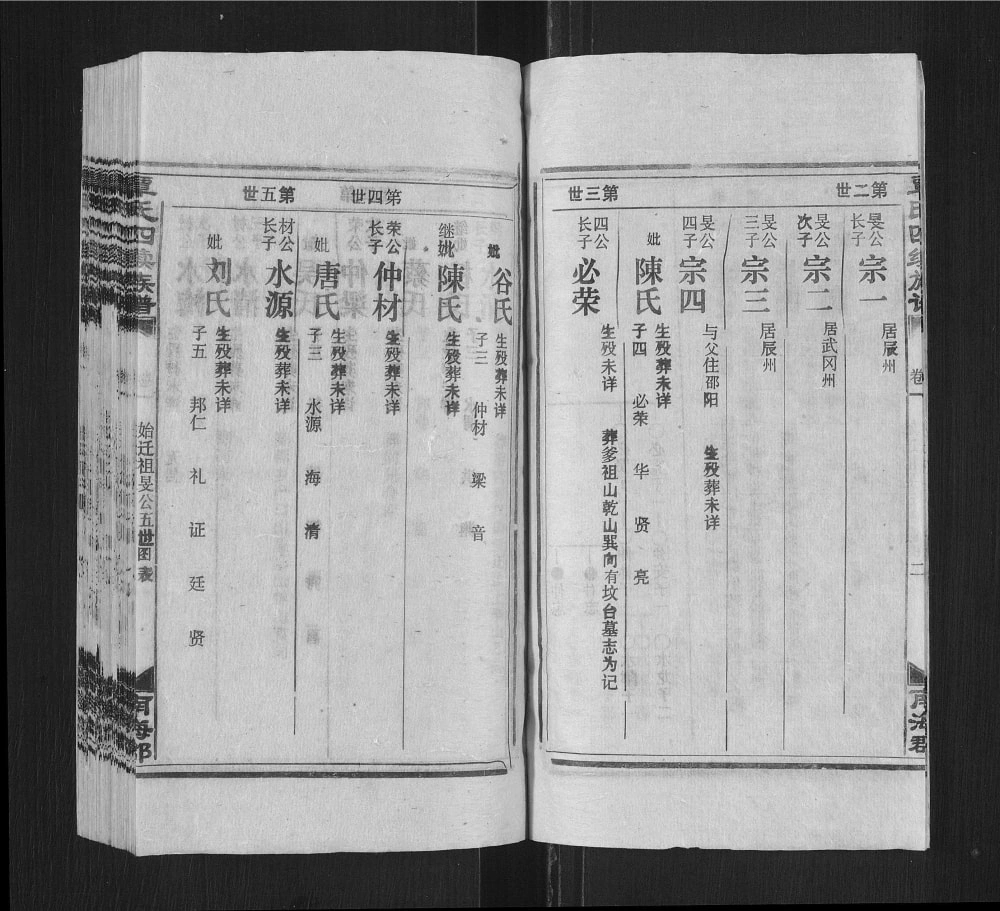 覃氏四续族谱
卷一
二
南海郡
第二世
旻公长子 宗一 居辰州
旻公次子 宗二 居武冈州
旻公三子 宗三 居辰州
旻公四子 宗四 与父住邵阳 生殁葬未详
妣 陳氏 生殁葬未详
子四 必荣 华 贤 亮
第三世
四公长子 必荣 生殁未详 葬爹祖山乾山巽向有坟台墓志为记
妣 谷氏 生殁葬未详
子三 仲材 梁 音
继妣 陳氏 生殁葬未详
第四世
荣公长子 仲材 生殁葬未详
妣 唐氏 生殁葬未详
子三 水源 海 清
第五世
材公长子 水源 生殁葬未详
妣 刘氏 生殁葬未详
子五 邦仁 礼 证 廷 贤
覃氏四续族谱
始迁祖旻公五世图表
南海郡